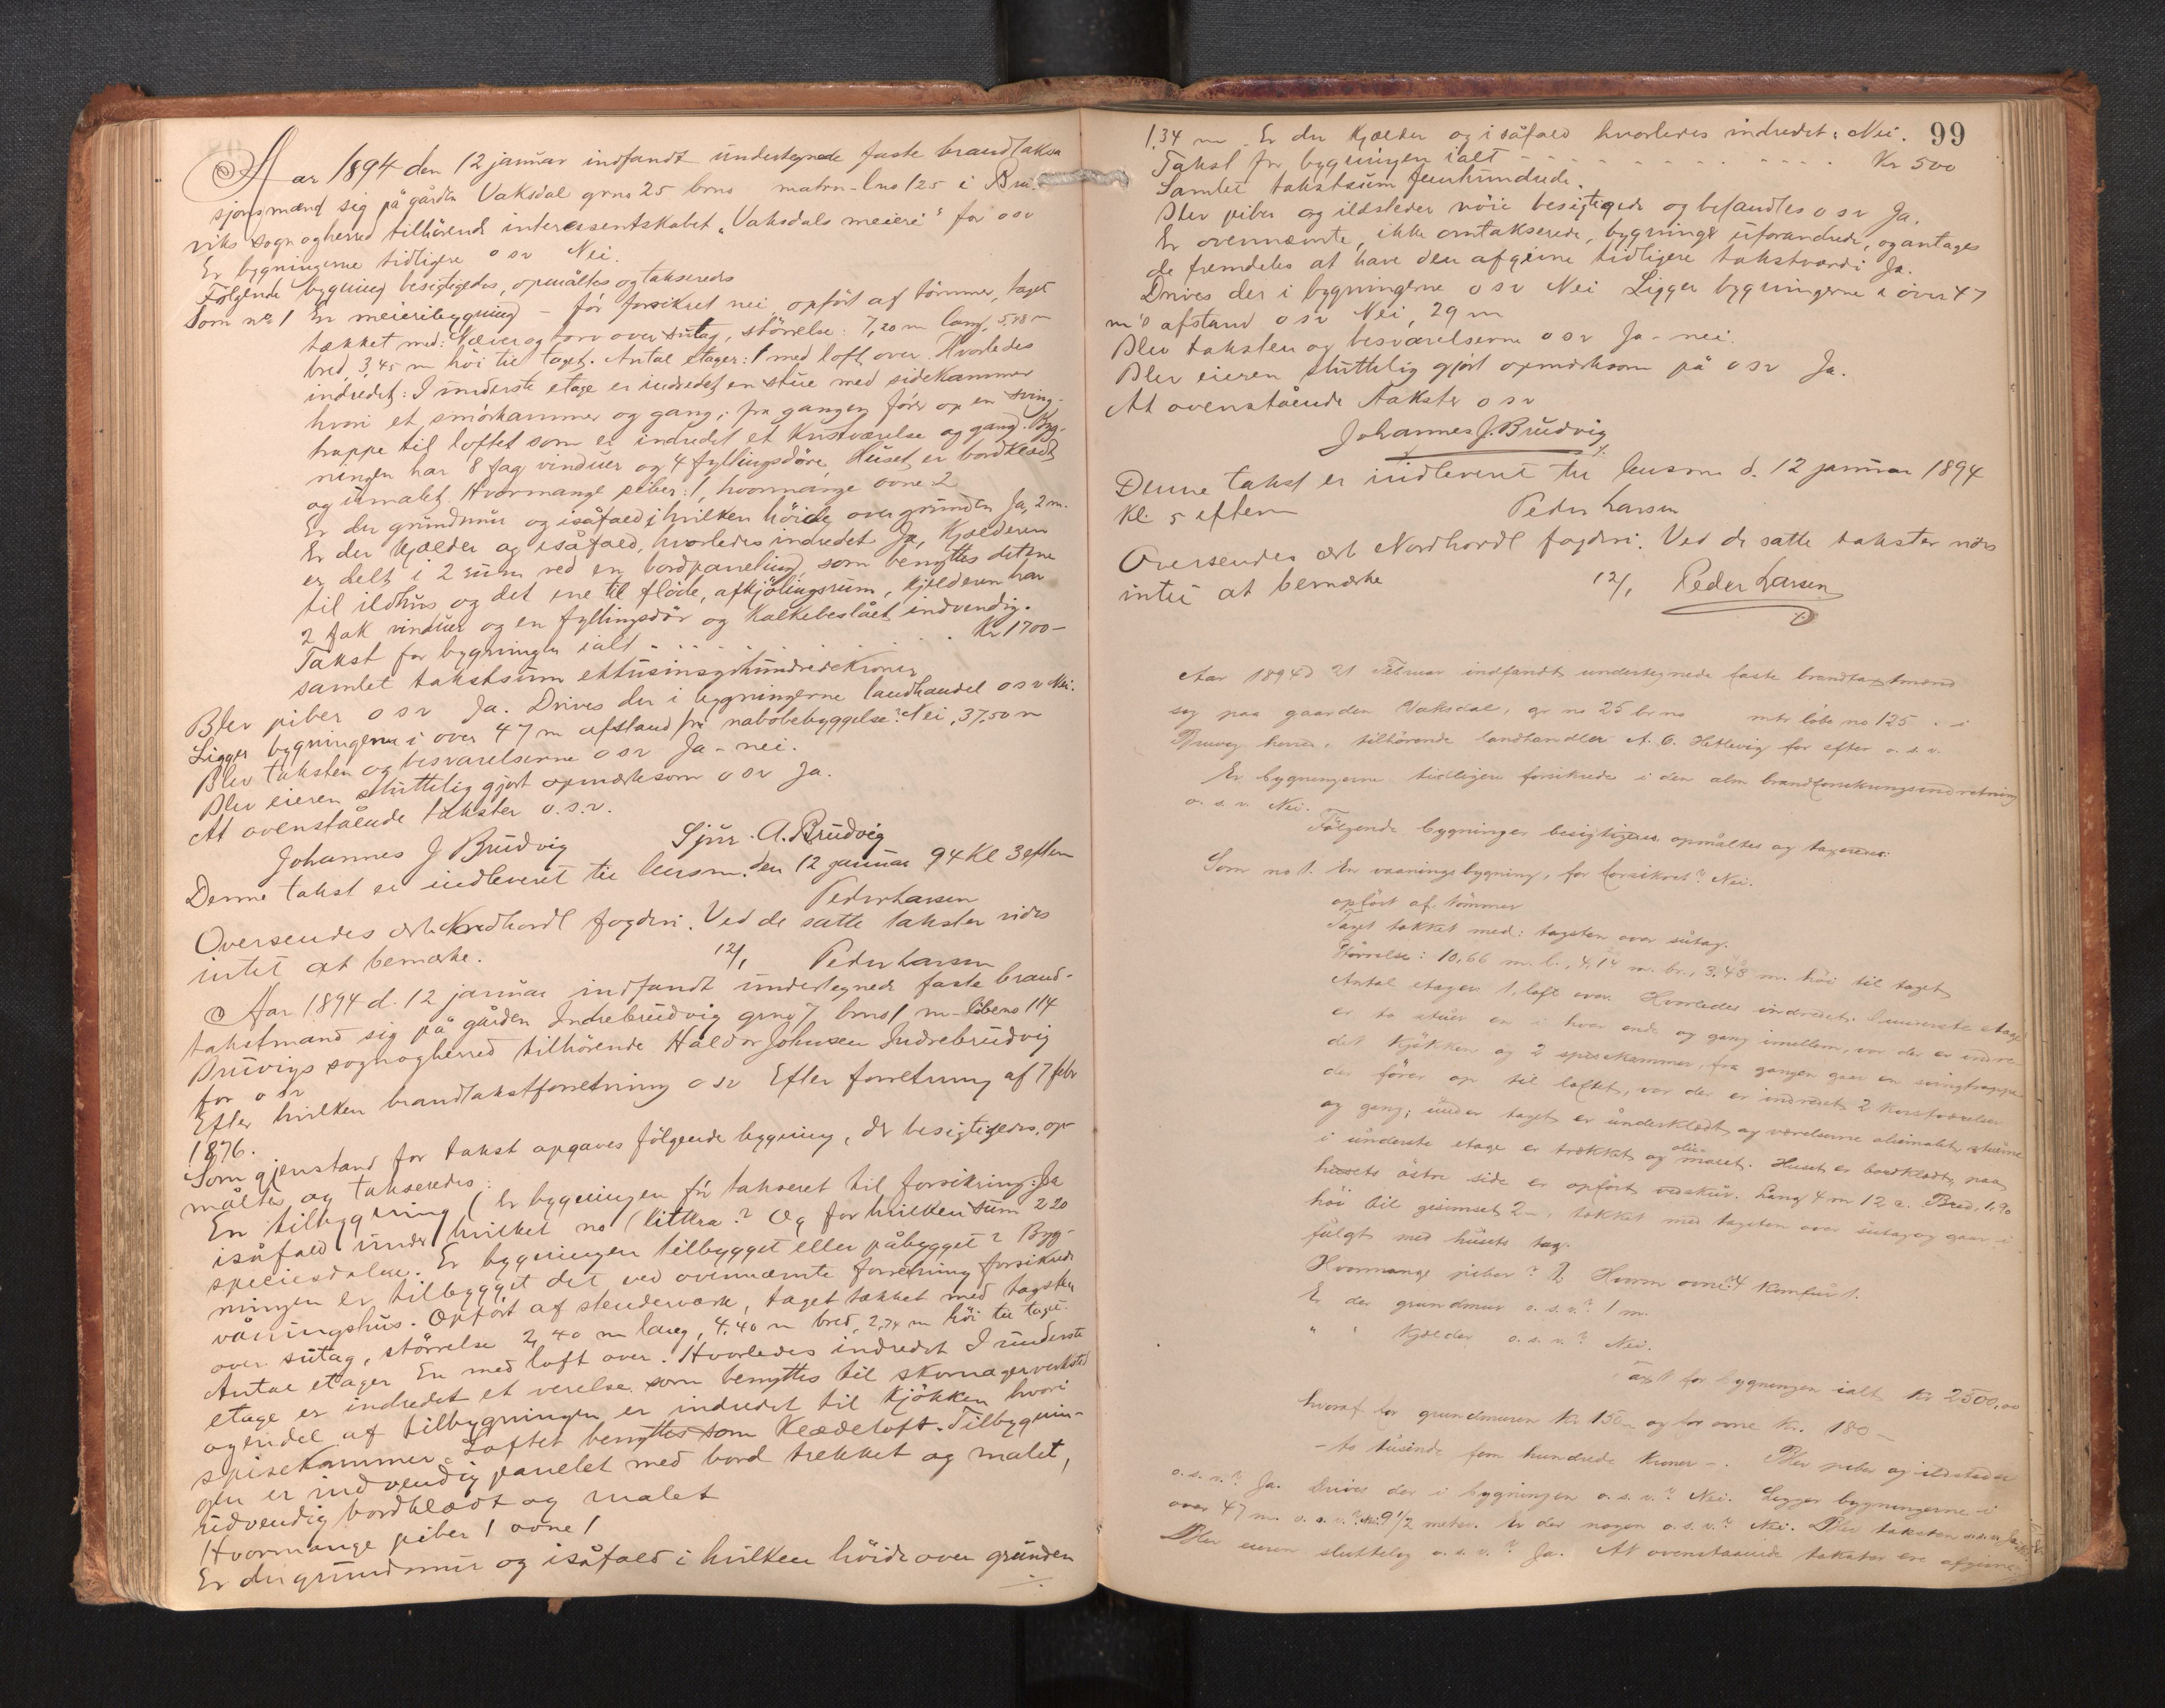 Aar 1894 den 12 januar indfandt undertegnede faste brandtaksa
sjonsmænd sig på gården Vaksdal grno 25 brno matrn-lno 125 i Bru-
viks sogn og herred tilhörende interessentskabet „Vaksdals meieri" for o s v
Er bygningerne tidligere o s v Nei.
Følgende bygning besigtigedes, opmåltes og takseredes
Som no 1 En meieribygning - för forsikret nei, opfört af tömmer, taget
tækket med: Næver og torv over sutag, störrelse: 7,20 m lang, 5,98 m
bred, 3,45 m höi til taget. Antal etager: 1 med loft over. Hvorledes
indredet: I underste etage er indredet en stue med sidekammer
hvori et smörkammer og gang; fra gangen förer op en sving-
trappe til loftet som er indredet et Kvistværelse og gang. Byg-
ningen har 8 fag vinduer og 4 fyllingsdöre, Huset er bordklædt
og umalet. Hvormange piber: 1, hvormange ovne 2
Er der grundmur og isåfald i hvilken höide over grunden Ja, 2 m.
Er der kjælder og isåfald, hvorledes indredet Ja, Kjælderen
er delt i 2 rum ved en bordpaneling, som benyttes det ene
til ildhus og det ene til flöde, afkjölingsrum, Kjelderen har
2 fak vinduer og en fyllingsdör og Kalkebeslået indvendig.
Takst for bygningen ialt . . . . . . . Kr 1700 -
samlet takstsum ettusinsyvhundredekroner
Blev piber o s v Ja. Drives der i bygningerne landhandel o s v Nei.
Ligger bygningerne i over 47 m afstand fra nabobebyggelse? Nei, 37,50 m
Blev taksten og besvarelserne o s v Ja - nei.
Blev eieren sluttelig gjort opmærksom o s v Ja.
At ovenstående takster o. s. v.
Johannes J Brudvig Sjur. A. Brudvig
Denne takst er indleveret til lensm. den 12 januar 94 Kl 3 eftm
Peder Larsen
Oversendes ærb. Nordhordl fogderi. Ved de satte takster vides
intet at bemærke. 12/1 Peder Larsen
Aar 1894 d. 12 januar indfandt undertegnede faste brand-
takstmænd sig på gården Indrebrudvig grno 7 brno 1 m-löbeno 114
Bruvigs sogn og herred tilhörende Haldor Johnsen Indrebrudvig
for o s v
Efter hvilken brandtakstforretning o s v Efter forretning af 7 febr
1876.
Som gjenstand for takst opgaves følgende bygning, der besigtigedes, op-
måltes og takseredes:
En tilbygning (Er bygningen för takseret til forsikring: Ja
isåfald under hvilket no (littra? Og for hvilken sum 220
speciesdaler. Er bygningen tilbygget eller påbygget? Byg-
ningen er tilbygget det ved ovennæmte forretning forsikrede
våningshus. Opfört af stenderværk, taget tækket med tagsten
over sutag, störrelse 2,40 m lang, 4,40 m bred, 2,74 m höi til taget.
Antal etager En med loft over. Hvorledes indredet I underste
etage er indredet et verelse som benyttes til skomagerverksted
og endel af tilbygningen er indredet til Kjökken hvori
spisekammer. Loftet benyttes som Klædeloft. Tilbygnin-
gen er indvendig panelet med bord trekket og malet,
udvendig bordklædt og malet
Hvormange piber 1 ovne 1
Er der grundmur og isåfald i hvilken höide over grunden
99
1,34 m Er der Kjælder og isåfald hvorledes indredet: Nei.
Takst for bygningen ialt - - - - - - . . . . . Kr 500
Samlet takstsum femhundrede.
Blev piber og ildsteder nöie besigtigede og befandtes o s v Ja.
Er ovennæmte, ikke omtakserede, bygninger uforandrede, og antages
de fremdeles at have den afgivne tidligere takstværdi Ja.
Drives der i bygningerne o s v Nei Ligger bygningerne i over 47
m's afstand o s v Nei, 29 m
Blev taksten og besvarelserne o s v Ja - nei.
Blev eieren sluttelig gjort opmærksom på o s v Ja.
At ovenstående takster o s v
Johannes J. Brudvig
Denne takst er indleveret til lensm d. 12 januar 1894
Kl. 5 efterm Peder Larsen
Oversendes ærb Nordhordl fogderi. Ved de satte takster vides
intet at bemærke 12/1 Peder Larsen
Aar 1894 d 21 Februar indfandt undertegnede faste brandtaxtmænd
sig paa gaarden Vaksdal, gr no 25 br no mtr löbe no 125 . i
Bruvig herred, tilhörende landhandler A. O. Hetlevig for efter o. s. v.
Er bygningerne tidligere forsikrede i den alm brandforsikringsindretning
o. s. v. Nei.
Følgende bygninger besigtigedes opmåltes og taxeredes:
Som no 1. En vaaningsbygning, för forsikret? Nei.
opfört af tömmer
Taget tækket med: tagsten over sutag.
Störrelse: 10,66 m. l., 4,14 m. br., 3,48 m. höi til taget
Antal etager 1, loft over. Hvorledes indredet. I underste etage
er to stuer en i hver ende og gang imellem, vor der er indre-
det Kjökken og 2 spisekammer, fra gangen gaar en svingtrappe
der förer op til loftet, vor der er indredet 2 Kvistværelser
og gang; under taget er underklædt og værelserne oliemalet, stuerne
i underste etage er trækket og oliemalet. Huset er bordklædt, paa
husets östre side er opfört vedskur. Lang 4 m 12 c. Bred, 1,90
höi til gisimset 2 -, tækket med tagsten over sutag og gaar i
fulgt med husets tag.
Hvormange piber? 2, Hvorm ovne? 4 Komfur 1.
Er der grundmur o. s. v.? 1 m.
" " Kjælder o. s. v.? Nei.
Taxt for bygningen ialt Kr 2500,00
hvoraf for grundmuren Kr 150 - og for ovne Kr. 180 -
- to tusinde fem hundrede kroner -. Blev piber og ildsteder
o. s. v.? Ja. Drives der i bygningen o. s. v.? Nei. Ligger bygningerne i
over 47 m. o. s. v.? Nei 9 1/2 meter. Er der nogen o. s. v.? Nei. Blev taksten o. s. v.
Blev eieren sluttelig o. s. v.? Ja. At ovenstaaende takster ere afgivne